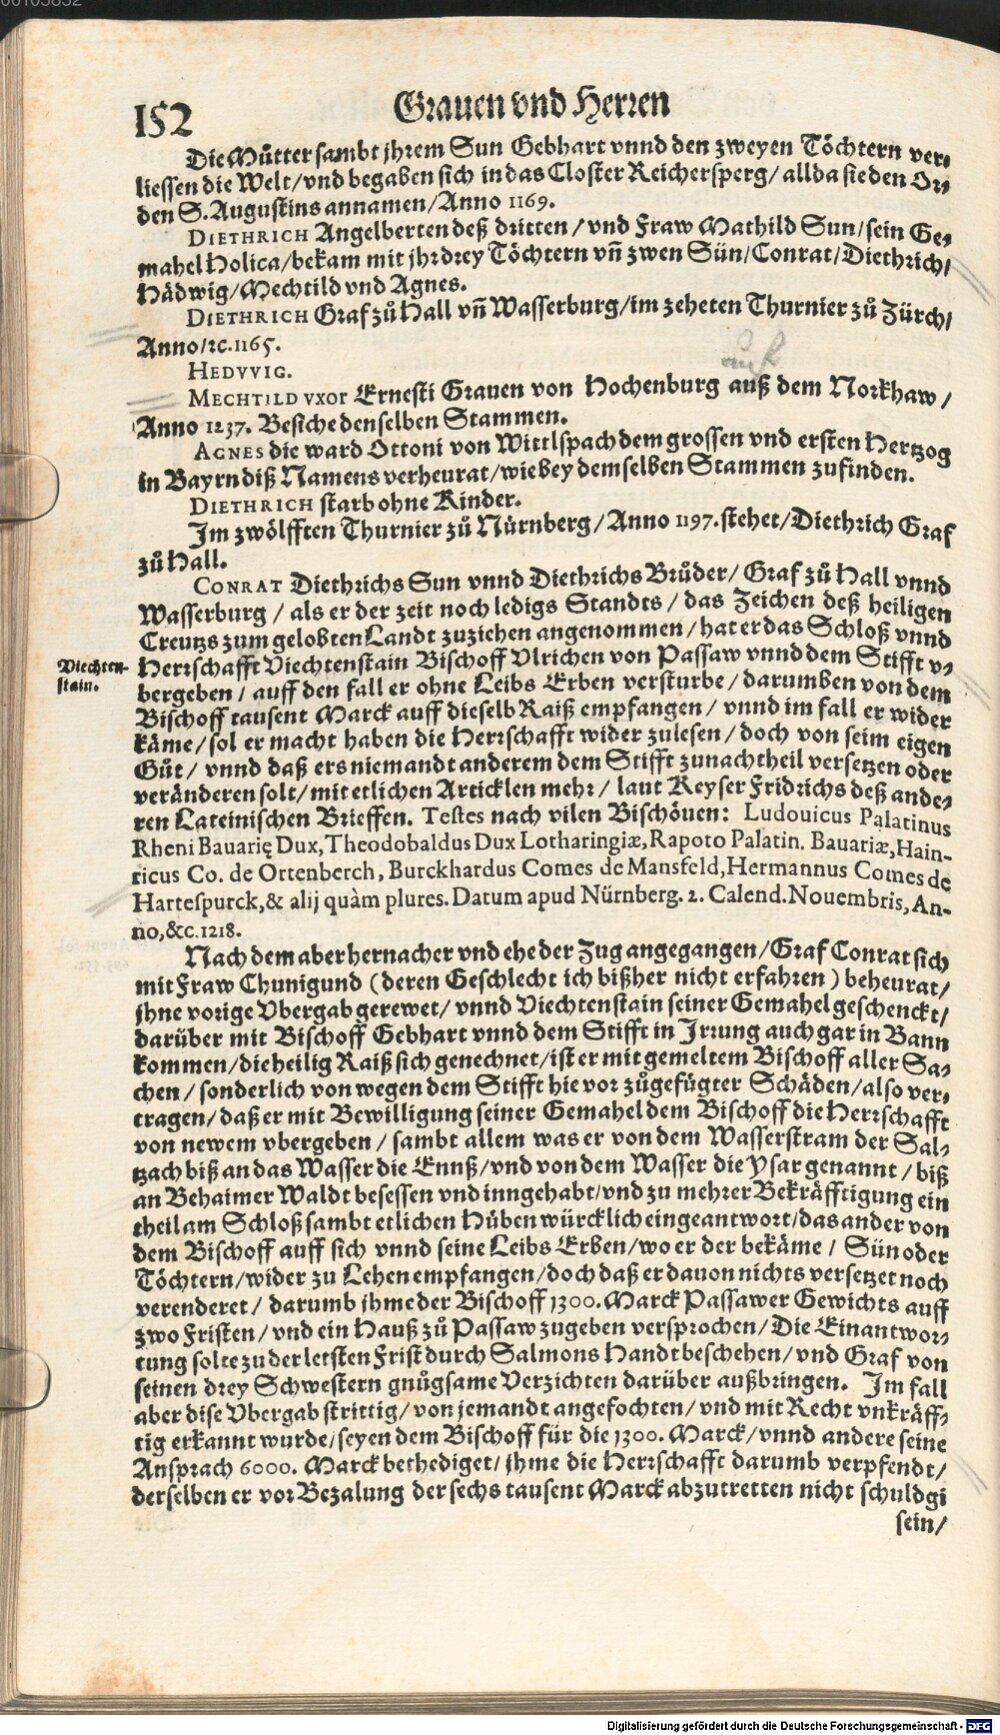 152
Grauen vnd Herren
Die Můtter sambt jhrem Sun Gebhart vnnd den zweyen Töchtern ver⸗
liessen die Welt/vnd begaben sich in das Closter Reichersperg/allda sie den Or⸗
den S. Augustins annamen/Anno 1169.
DIETHRICH Angelberten deß dritten/vnd Fraw Mathild Sun/sein Ge⸗
mahel Holica/bekam mit jhr drey Töchtern vñ zwen Sün/Conrat/Diethrich/
Hädwig/Mechtild vnd Agnes.
DIETHRICH Graf zů Hall vñ Wasserburg/im zeheten Thurnier zů Zürch/
Anno/ꝛc.1165.
HEDVVIG.
MECHTILD vxor Ernesti Grauen von Hochenburg auß dem Norkhaw/
Anno 1237. Besiche denselben Stammen.
AGNES die ward Ottoni von Wittlspach dem grossen vnd ersten Hertzog
in Bayrn diß Namens verheurat/wie bey demselben Stammen zufinden.
DIETHRICH starb ohne Kinder.
Im zwölfften Thurnier zů Nürnberg/Anno 1197. stehet/Diethrich Graf
zů Hall.
CONRAT Diethrichs Sun vnnd Diethrichs Brůder/Graf zů Hall vnnd
Wasserburg/als er der zeit noch ledigs Standts/das Zeichen deß heiligen
Creutzs zum gelobten Landt zuziehen angenommen/hat er das Schloß vnnd
Viechten-
stain.
Herrschafft Viechtenstain Bischoff Vlrichen von Passaw vnnd dem Stifft v⸗
bergeben/auff den fall er ohne Leibs Erben versturbe/darumben von dem
Bischoff tausent Marck auff dieselb Raiß empfangen/vnnd im fall er wider
käme/sol er macht haben die Herrschafft wider zulesen/doch von seim eigen
Gůt/vnnd daß ers niemandt anderem dem Stifft zunachtheil versetzen oder
veränderen solt/mit etlichen Articklen mehr/laut Keyser Fridrichs deß ande⸗
ren Lateinischen Brieffen. Testes nach vilen Bischöuen: Ludouicus Palatinus
Rheni Bauarię Dux, Theodobaldus Dux Lotharingiæ, Rapoto Palatin. Bauariæ, Hain-
ricus Co. de Ortenberch, Burckhardus Comes de Mansfeld, Hermannus Comes de
Hartespurck, & alij quàm plures. Datum apud Nürnberg. 2. Calend. Nouembris, An-
no, &c. 1218.
Nach dem aber hernacher vnd ehe der Zug angegangen/Graf Conrat sich
mit Fraw Chunigund (deren Geschlecht ich bißher nicht erfahren) beheurat/
jhne vorige Vbergab gerewet/vnnd Viechtenstain seiner Gemahel geschenckt/
darüber mit Bischoff Gebhart vnnd dem Stifft in Irrung auch gar in Bann
kommen/die heilig Raiß sich genechnet/ist er mit gemeltem Bischoff aller Sa⸗
chen/sonderlich von wegen dem Stifft hievor zůgefügter Schäden/also ver⸗
tragen/daß er mit Bewilligung seiner Gemahel dem Bischoff die Herrschafft
von newem vbergeben/sambt allem was er von dem Wasserstram der Sal⸗
tzach biß an das Wasser die Ennß/vnd von dem Wasser die Ysar genannt/biß
an Behaimer Waldt besessen vnd inngehabt/vnd zu mehrer Bekräfftigung ein
theil am Schloß sambt etlichen Hůben würcklich eingeantwort/das ander von
dem Bischoff auff sich vnnd seine Leibs Erben/wo er der bekäme/Sün oder
Töchtern/wider zu Lehen empfangen/doch daß er dauon nichts versetzet noch
verenderet/darumb jhme der Bischoff 1300. Marck Passawer Gewichts auff
zwo Fristen/vnd ein Hauß zů Passaw zugeben versprochen/Die Einantwor⸗
tung solte zu der letsten Frist durch Salmons Handt beschehen/vnd Graf von
seinen drey Schwestern gnůgsame Verzichten darüber außbringen. Im fall
aber dise Vbergab strittig/von jemandt angefochten/vnd mit Recht vnkräff⸗
tig erkannt wurde/seyen dem Bischoff für die 1300. Marck/vnnd andere seine
Ansprach 6000. Marck bethediget/jhme die Herrschafft darumb verpfendt/
derselben er vor Bezalung der sechs tausent Marck abzutretten nicht schuldgi
sein/
Digitalisierung gefördert durch die Deutsche Forschungsgemeinschaft - DFG